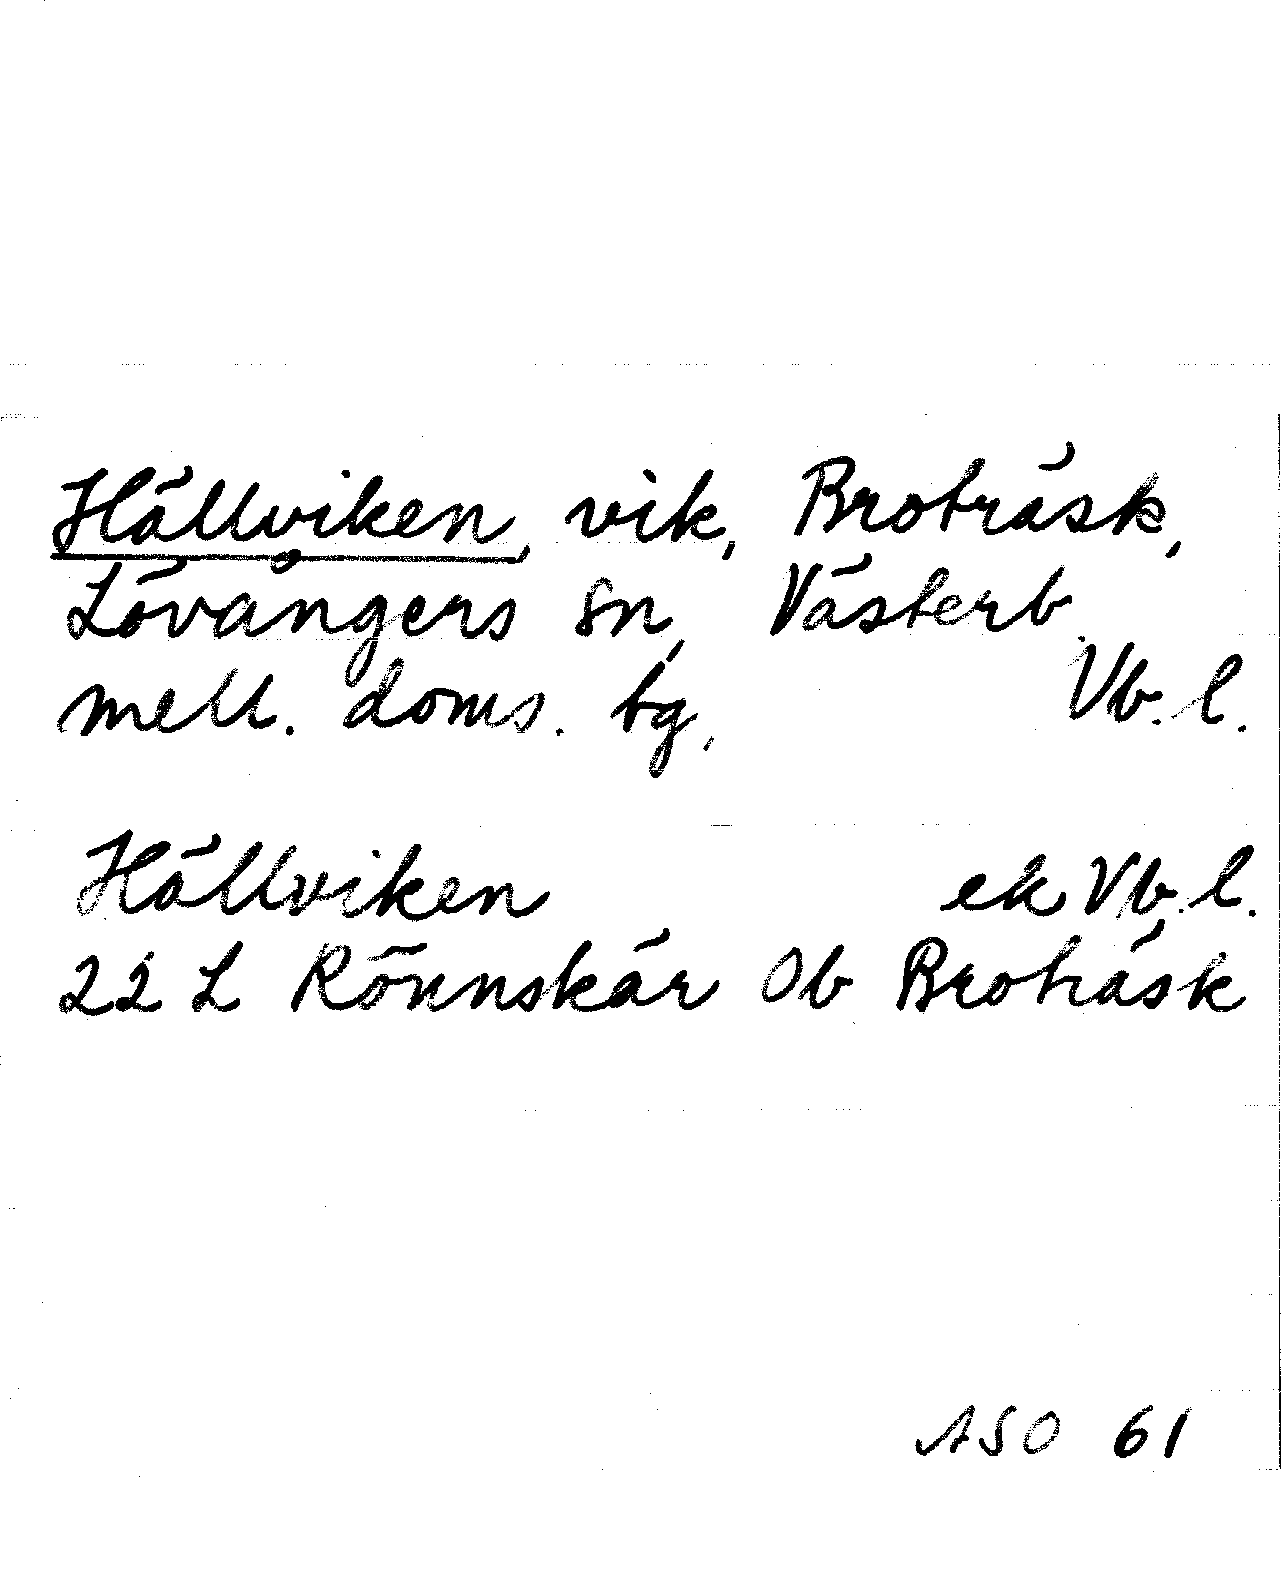 Hällviken, vik, Broträsk,
Lövångers sn, Västerb.
mell. doms. tg, Vb. l.
Hällviken ek Vb. l.
22 L Rönnskär Ob Broträsk
ASO 61